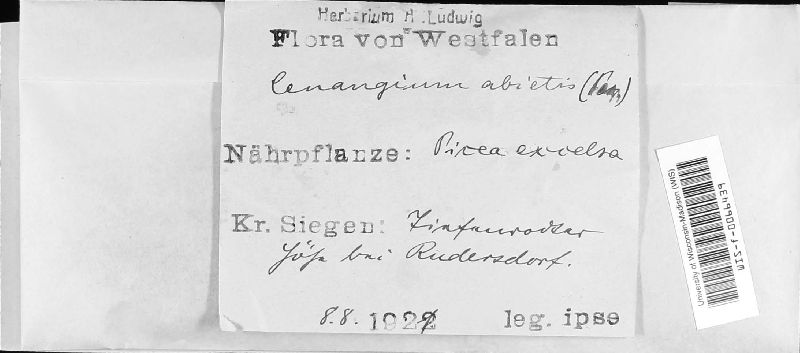 Herbarium A. Ludwig
Flora von Westfalen
Cenangium abietis (Pers.)
Nährpflanze: Picea excelsa
Kr. Siegen: Tiefenrodter
Höhe bei Rudersdorf.
8.8. 192
leg. ipse
University of Wisconsin-Madison (WIS)
WIS-f-0066439